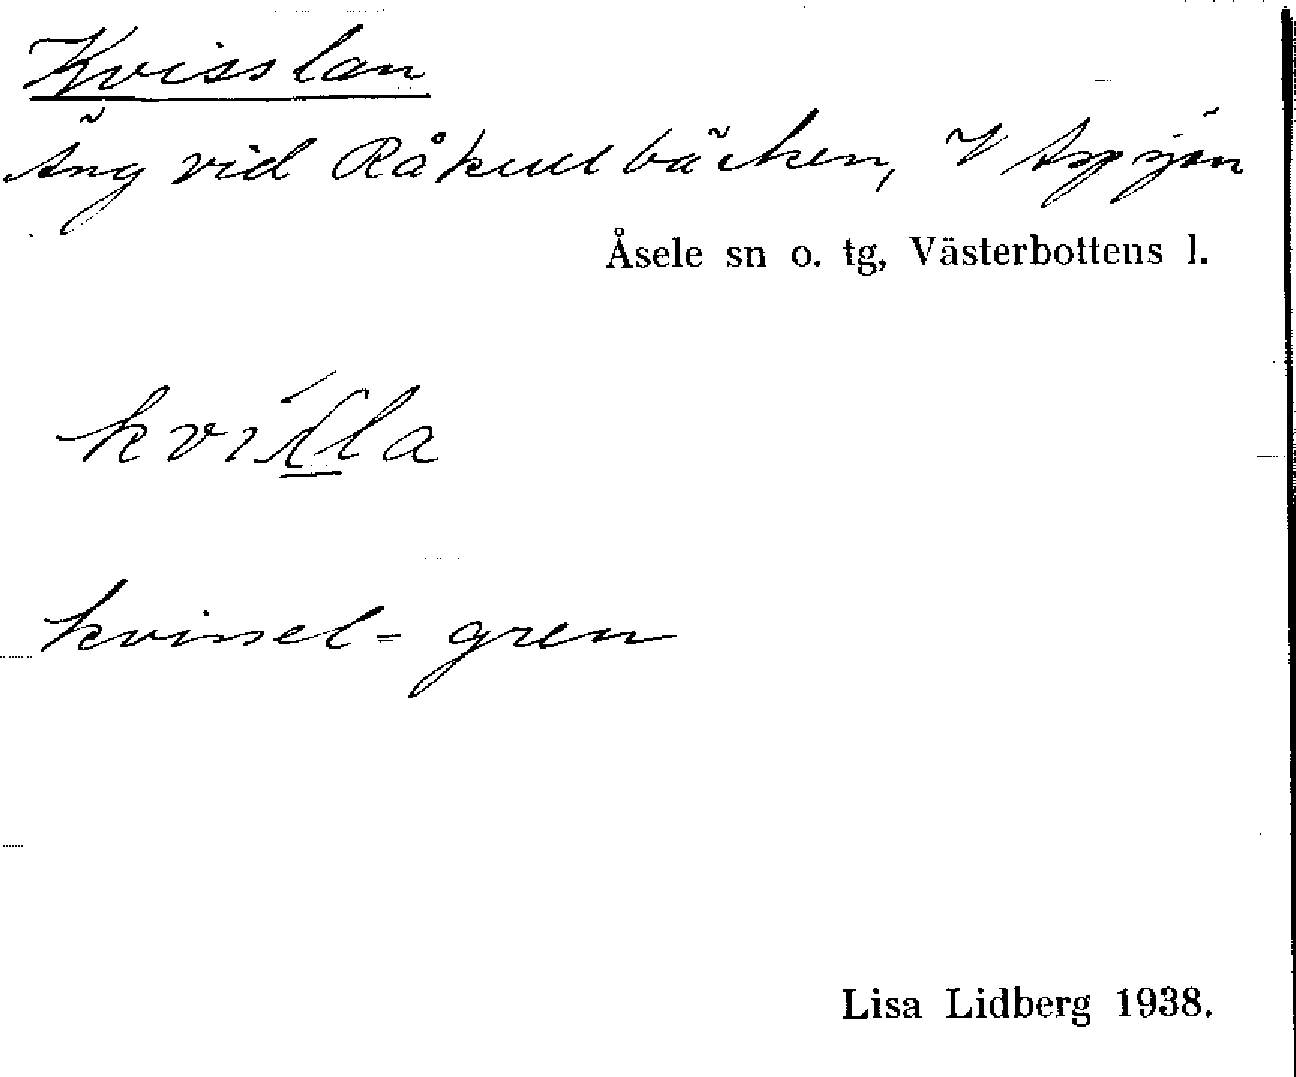 Kvisslan
Äng vid Råkullbäcken, V Aspsjön
Åsele sn o. tg, Västerbottens l.
kvissel = gren
Lisa Lidberg 1938.